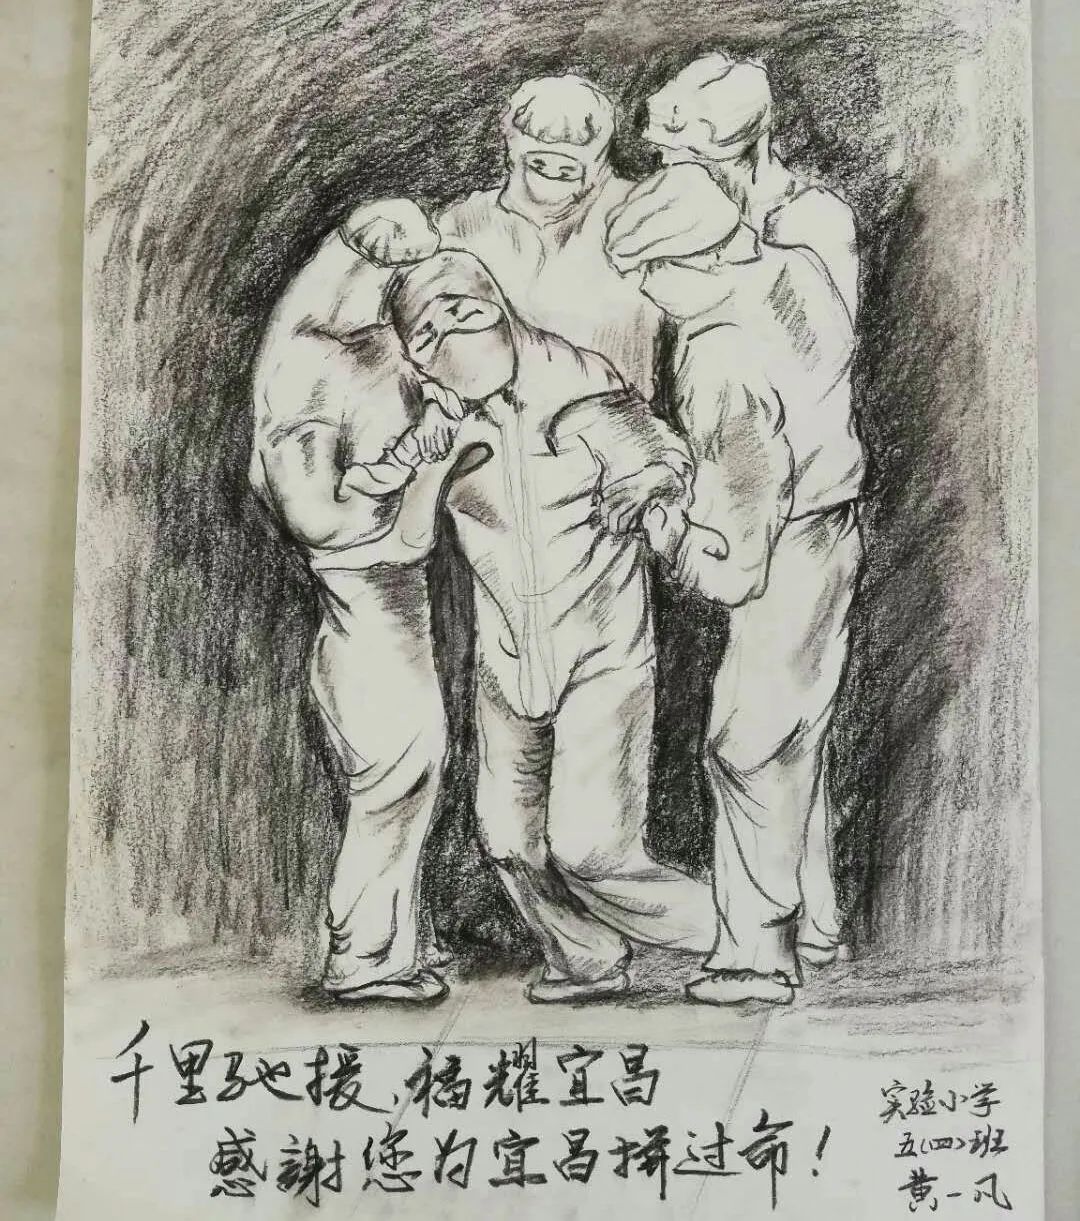 千里驰援、福耀宜昌
感謝您为宜昌拼过命！
实验小学
五(四)班
黄一凡